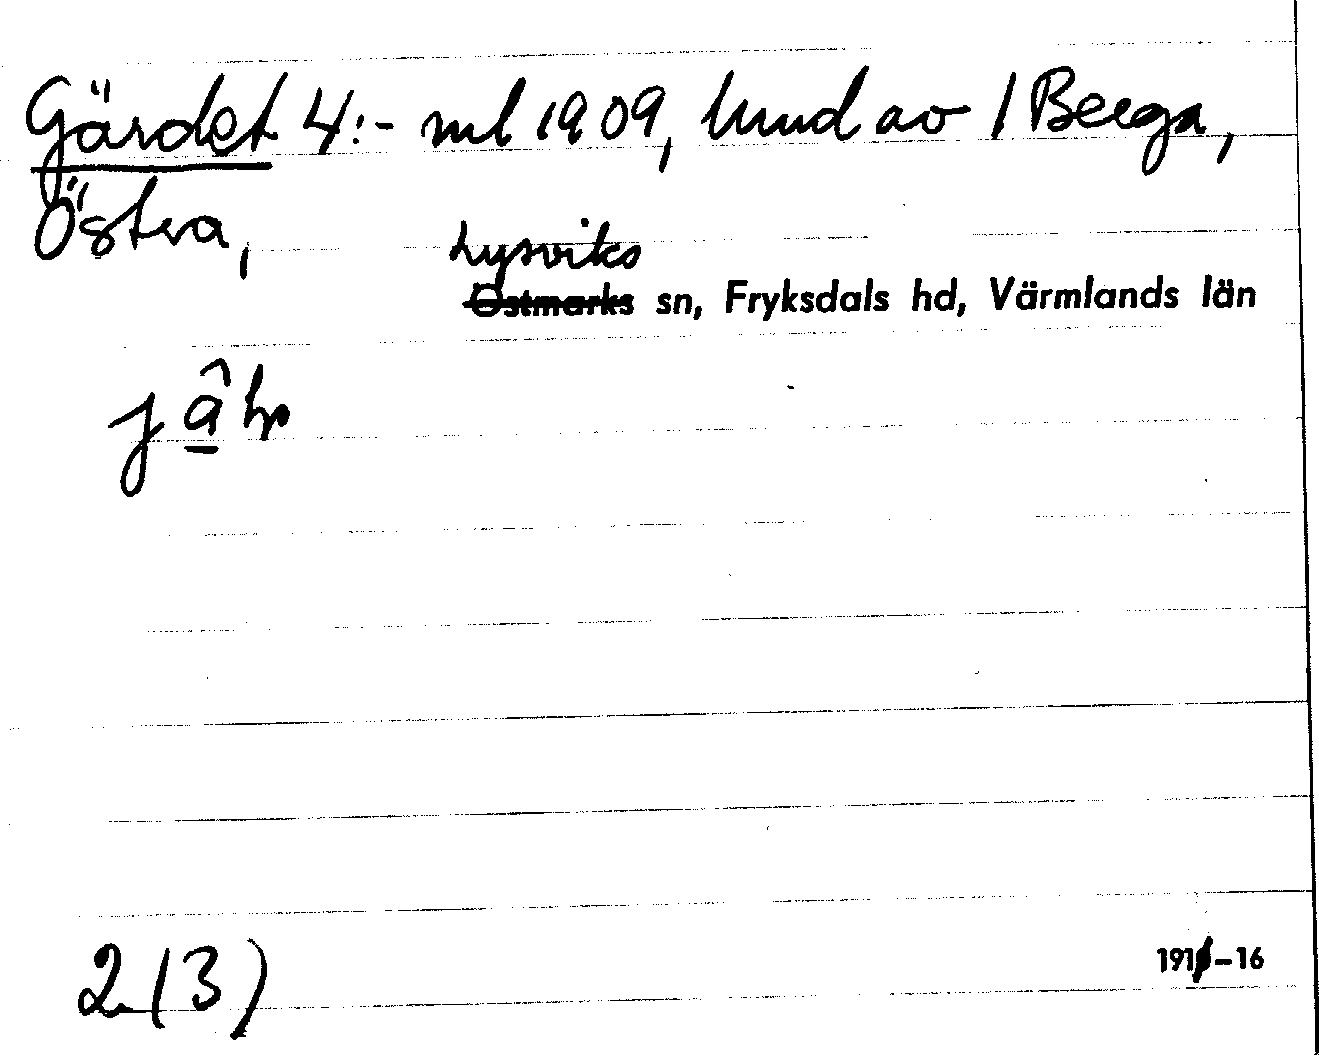 Gärdet 4:- ml 1909, hmd av 1 Berga,
Östra,
Lysviks
Östmarks sn, Fryksdals hd, Värmlands län
2 (3)